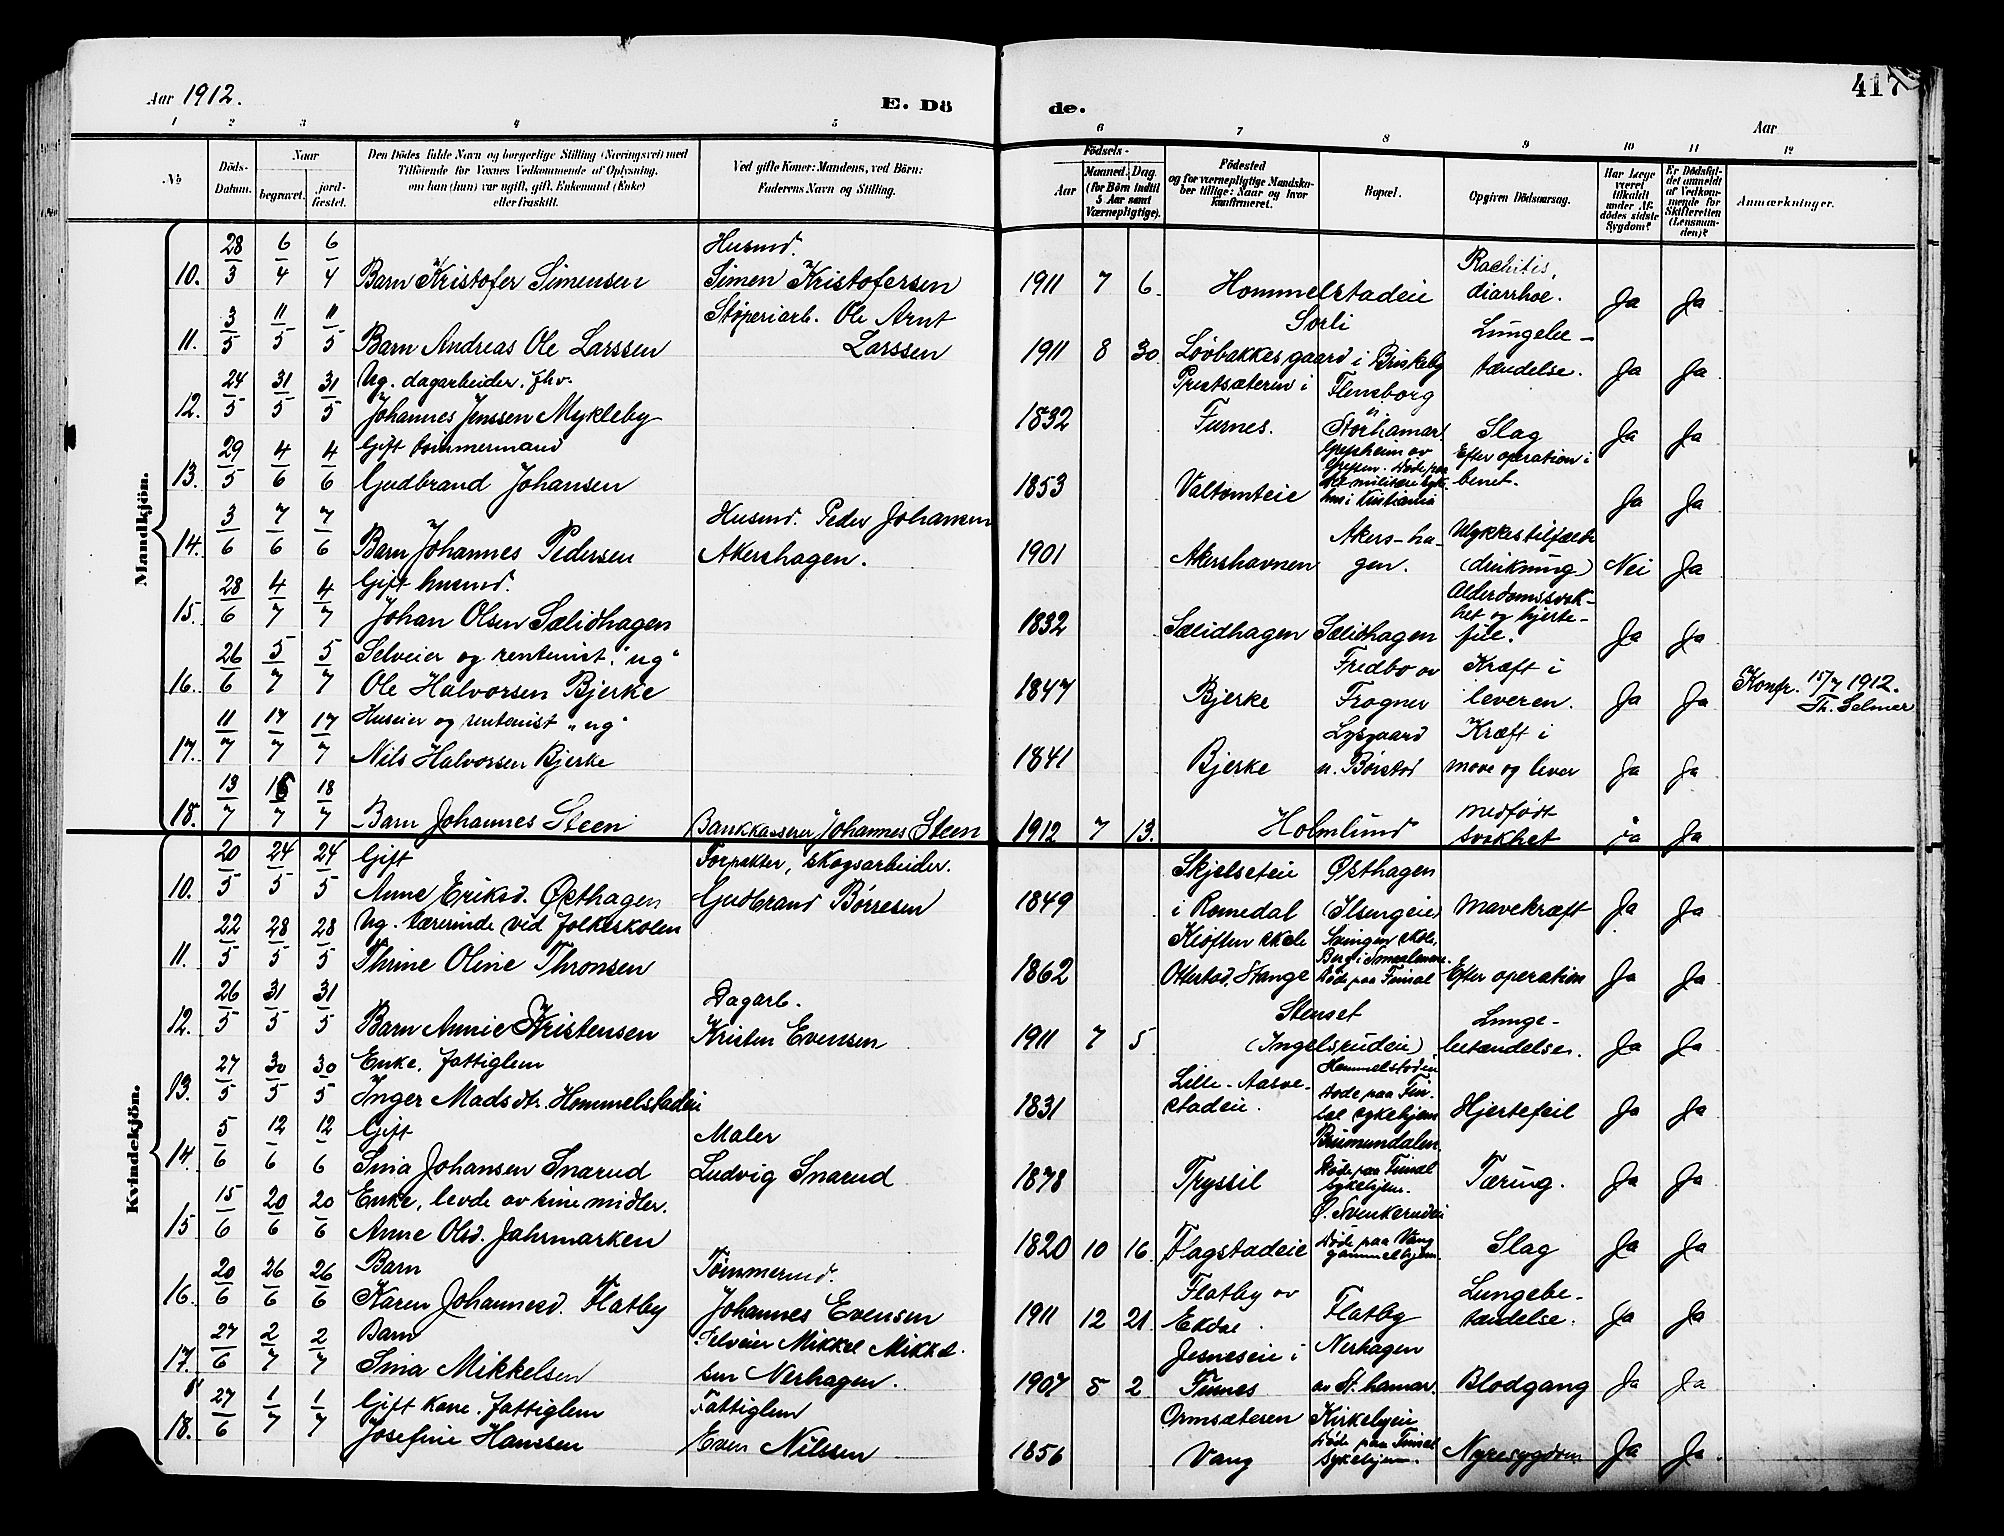 Aar 1912.
E. Dö
de.
417
Aar
1 2 3 4 5 6 7 8 9 10 11 12
No
Döds-Datum.
Naar
begravet.
jord-fæstet.
Den Dödes fulde Navn og borgerlige Stilling (Næringsvei) med
Tilföiende for Voxnes Vedkommende af Oplysning,
om han (hun) var ugift, gift, Enkemand (Enke)
eller fraskilt.
Ved gifte Koner: Mandens, ved Börn:
Faderens Navn og Stilling.
Födsels-
Aar
Maaned. Dag.
(for Börn indtil
5 Aar samt
Værnepligtige).
Födested
og for værnepligtige Mandska-
ber tillige: Naar og hvor
konfirmeret.
Bopæl.
Opgiven Dödsaarsag.
Har Læge
været
tilkaldt
under Af-
dödes sidste
Sygdom?
Er Dödsfal-
det anmeldt
af Vedkom-
mende for
Skifteretten
(Lensman-
den)?
Anmærkninger.
Mandkjön.
10. 28/3 6/4 6/4 Barn Kristofer Simensen Husmd. Simen Kristofersen 1911 7 6. Hommelstadeie Rachitis, diarrhoe. Ja Ja
11. 3/5 11/5 11/5 Barn Andreas Ole Larssen Støperiarb. Ole Arnt Larssen 1911 8 30. Sorli Løvbakkes gaard i Briskeby Lungebe-tændelse. Ja Ja
12. 24/5 31/5 31/5 Ug. dagarbeider. fhv. Johannes Jenssen Mykleby 1832 Prestsæteren i Furnes. Flensborg i Storhamar Slag Ja Ja
13. 29/5 4/6 4/6 Gift tømmermand Gudbrand Johansen 1853 Valtomteie Døde paa militære syk-hus i Kristiania Efter operation i benet. Ja Ja
14. 3/6 7/6 7/6 Barn Johannes Pedersen Husmd. Peder Johansen Akershagen. 1901 Akershavnen Akers-ha-gen. Ulykkestilfælde (drukning) Nei Ja
15. 28/6 4/7 4/7 Gift husmd. Johan Olsen Sælidhagen 1832 Sælidhagen Sælidhagen Alderdomssvak-het og hjerte-feil. Ja Ja
16. 26/6 5/7 5/7 Selveier og rentenist. "ug" Ole Halvorsen Bjerke 1847 Bjerke Fredbo av Frogner Kræft i leveren. Ja Ja Konfr. 15/7 1912. Th. Selmer
17. 11/7 17/7 17/7 Huseier og rentenist "ug" Nils Halvorsen Bjerke 1841 Bjerke Lysgaard u. Børstad Kræft i mave og lever Ja Ja
18. 13/7 18/7 18/7 Barn Johannes Steen Bankkasserer Johannes Steen 1912 7 13. Holmlund medfødt svakhet Ja Ja
Kvindekjön.
10. 20/5 24/5 24/5 Gift Anne Eriksd. Østhagen Forpakter, skogsarbeider. Gudbrand Børresen 1849 Skjelseteie i Romedal Østhagen (Ilsengeie) Mavekræft Ja Ja
11. 22/5 28/5 28/5 Ug. Lærerinde ved folkeskolen Thrine Oline Thronsen 1862 Kløften skole Ottestad, Stange Svingen skole, Berg i Smaalenene. Døde paa Finsal Efter operation Ja Ja
12. 26/5 31/5 31/5 Barn Annie Kristensen Dagarb. Kristen Evensen 1911 7 5 Stenset (Ingelsrudeie) Lunge-betændelse. Ja Ja
13. 27/5 30/5 30/5 Enke, fattiglem Inger Madsdtr. Hommelstadeie 1831 Lille-Aasve-stadeie. Hommelstadeie Døde paa Fin-sal sykehjem Hjertefeil Ja Ja
14. 5/6 12/6 12/6 Gift Sina Johansen Snarud Maler Ludvig Snarud 1878 Tryssil Brumundalen. Døde paa Finsal sykehjem. Tæring. Ja Ja
15 15/6 20/6 20/6 Enke, levde av sine midler. Anne Olsd. Jahrmarken 1820 10 16. Flagstadeie Ø. Svenkerudeie Døde paa Vang gammelhjem. Slag Ja Ja
16. 20/6 26/6 26/6 Barn Karen Johannesd. Flatby Tømmermd. Johannes Evensen 1911 12 21. Flatby av Ekdal. Flatby Lungebe-tændelse. Ja Ja
17. 27/6 2/7 2/7 Barn Sina Mikkelsen Selveier Mikkel Mikkel-sen Nerhagen. 1907 5 2 Jesneseie i Furnes Nerhagen av St. hamar. Blodgang Ja Ja
18. 27/6 1/7 1/7 Gift kone. fattiglem Josefine Hanssen Fattiglem Even Nilssen 1856 Ormsæteren Vang Kirkebyeie Døde paa Finsal sykehjem. Nyresygdom Ja Ja